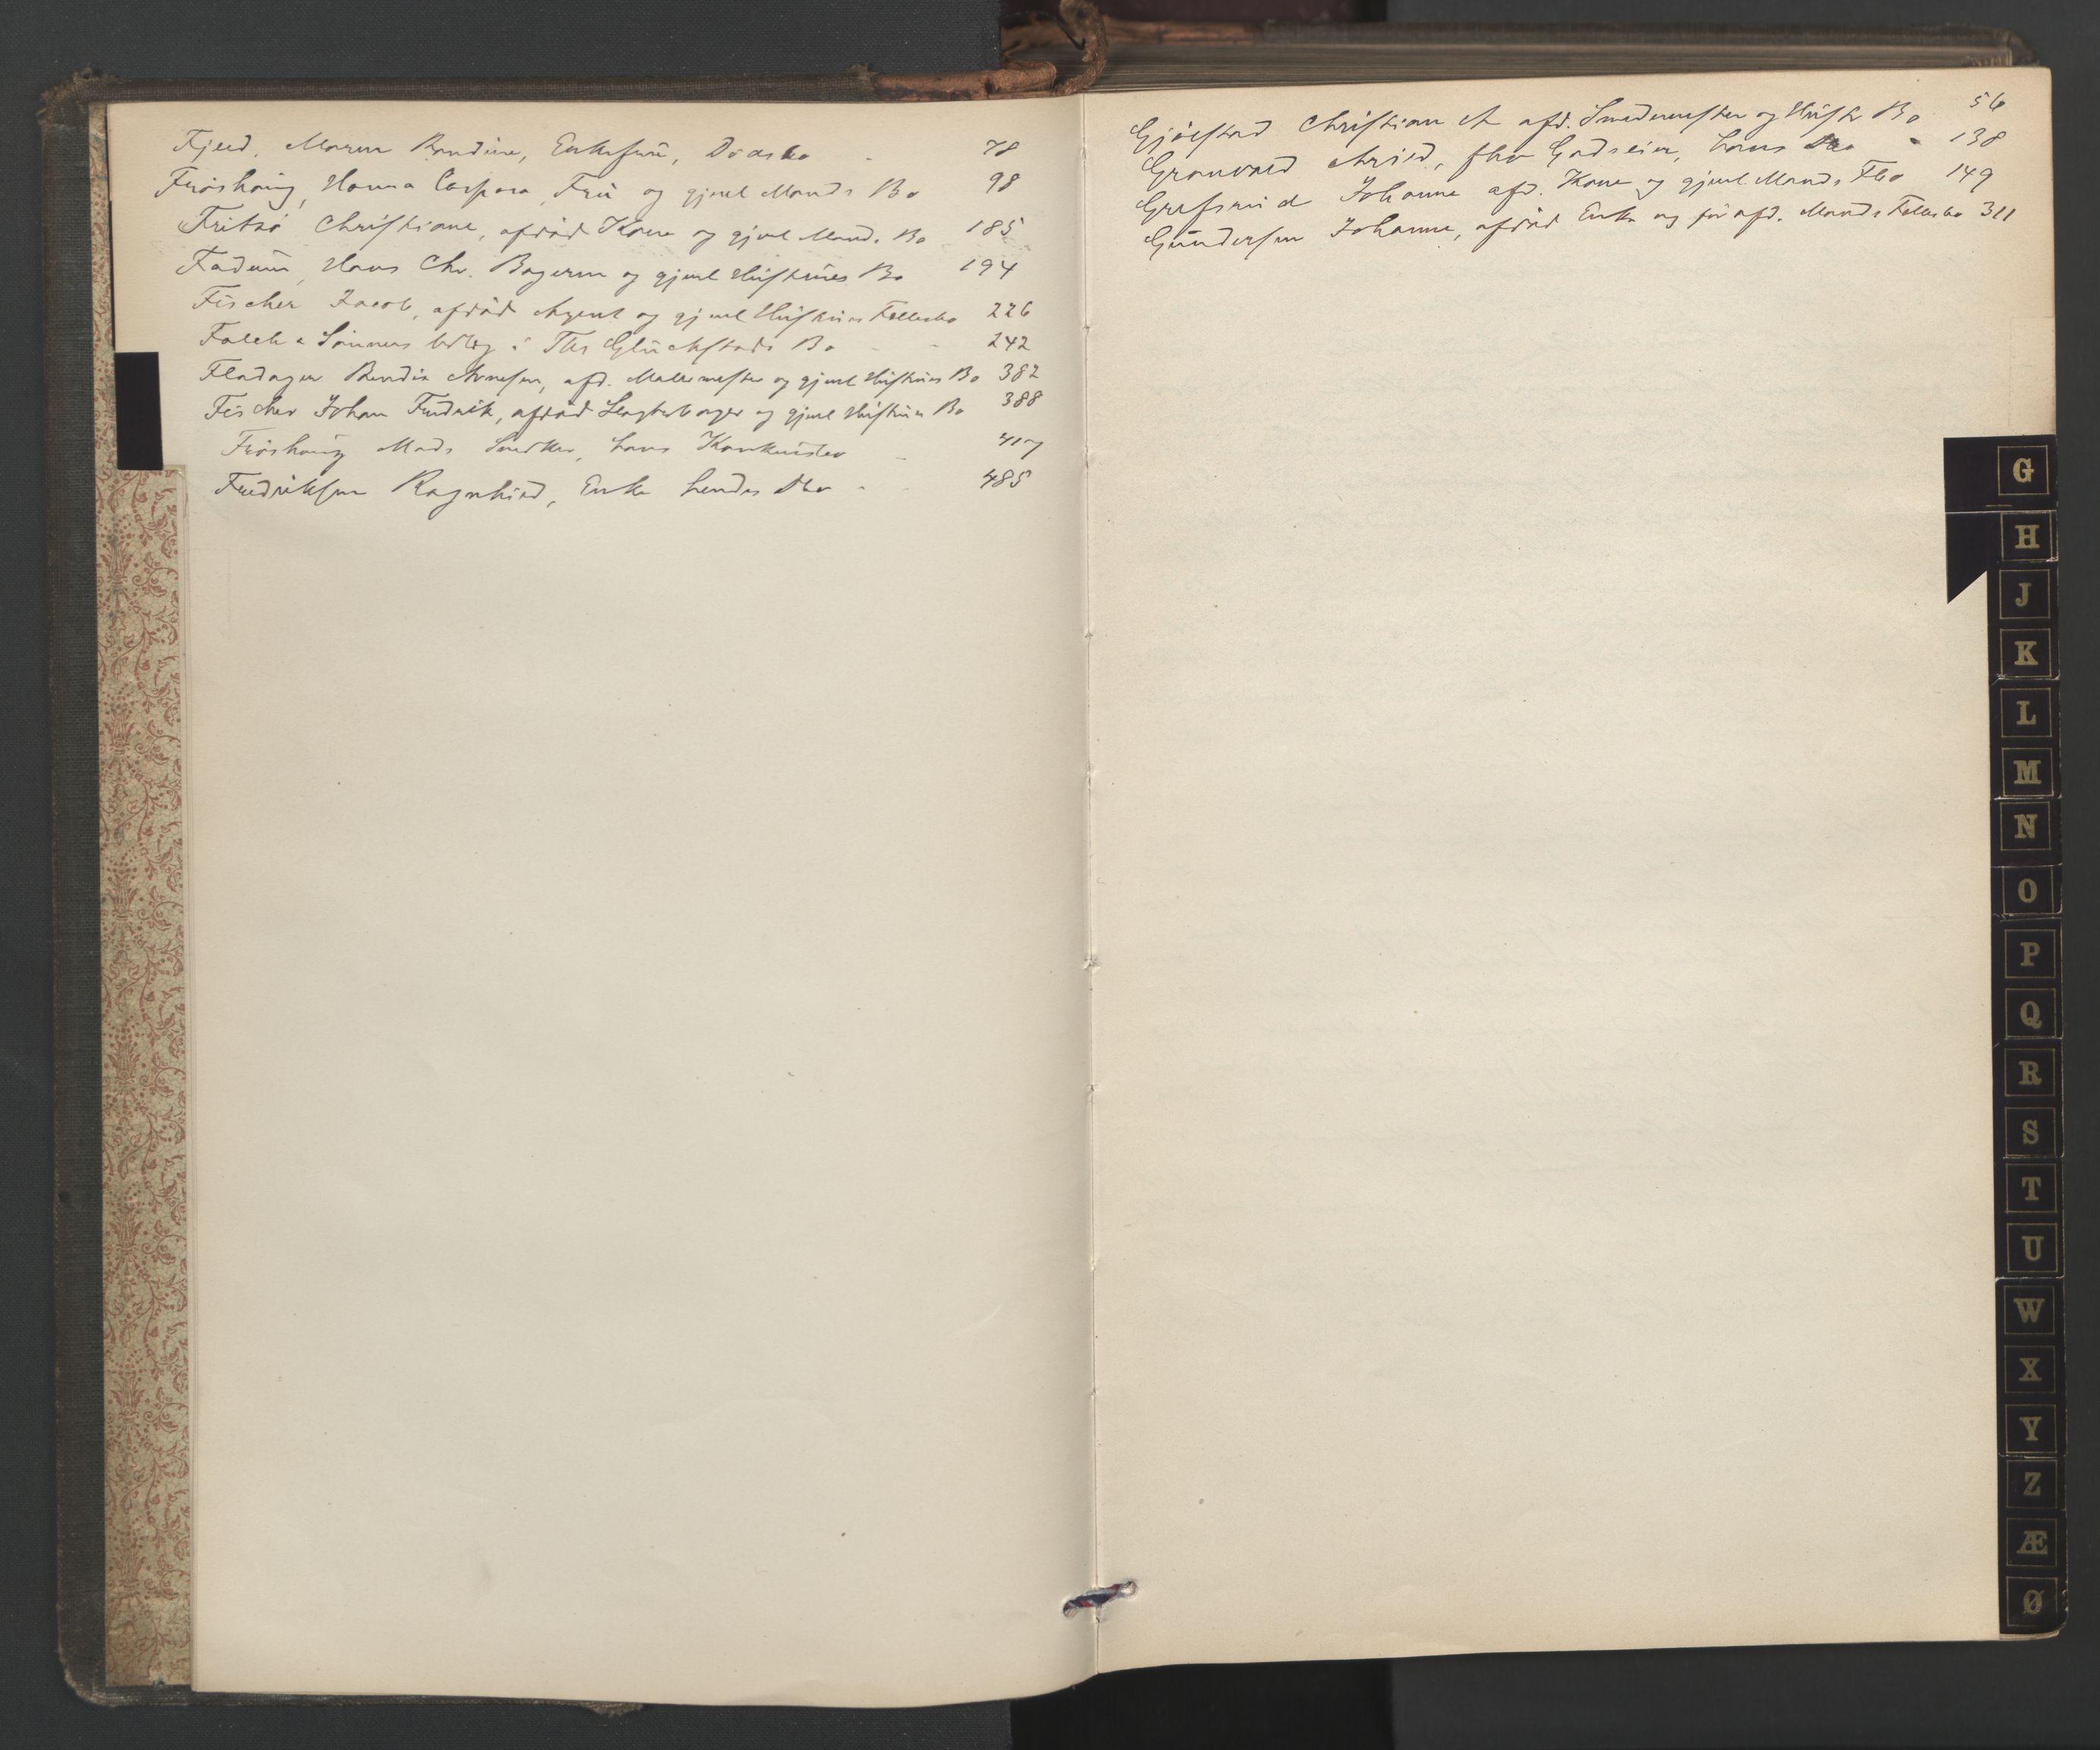 Fjeld, Maren Randine, Enkefrue, Dødsbo - 78
Frøshaug, Hanna Caspara, Frü og gjenl. Mands Bo 98
Fritzø Christiane, afdød Kone og gjenl Mands Bo 185
Fadum, Hans Chr. Bagerm og gjenl Hüstrües Bo 194
Fischer Jacob, afdød Agent og gjenl Hüstrües Fællesbo 226
Falck & Sønners Udlæg i Ths Glückstads Bo - - 242
Fladager Bendix Arnesen, afd. Malermester og gjenl Hüstrües Bo 382
Fischer Johan Fredrik, afdød Slagterborger og gjenl Hüstrües Bo 388
Frøshaug Mads Snedker, hans Konkursbo - 417
Fredriksen Ragnhild, Enke hendes Dbo - - 485
Gjølstad Christian A afd. Smedemester og Hüstr Bo 56
Granvold Arild, fhv Gadseier, hans Dbo - 138
Grefsrud Johanne afd. Kone og gjenl. Mands Fbo 149
Gündersen Johanne, afdød Enke og før afd. Mands Fellesbo 311
G
H
J
K
L
M
N
O
P
Q
R
S
T
U
W
X
Y
Z
Æ
Ø